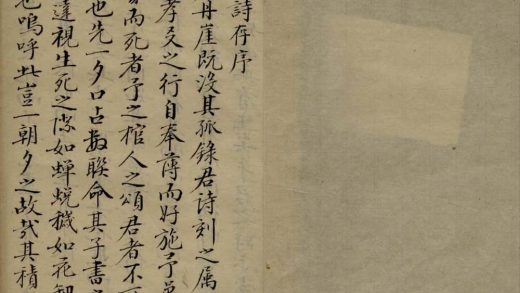 詩存序
丹崖既沒其孤錄君詩刻之属
孝友之行自奉薄而好施予
而死者予之棺人之頌君者不
也先一夕口占數聯命其子書
達視生死之際如蟬蛻穢如花
嗚呼此豈一朝夕之故哉其積